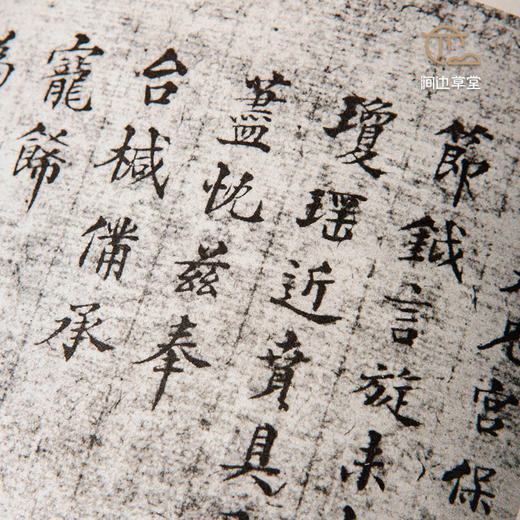 宮保
節鉞言旋未
瓊瑤近賁具
蓋忱茲奉
台椷備承
寵餙
阿边草堂